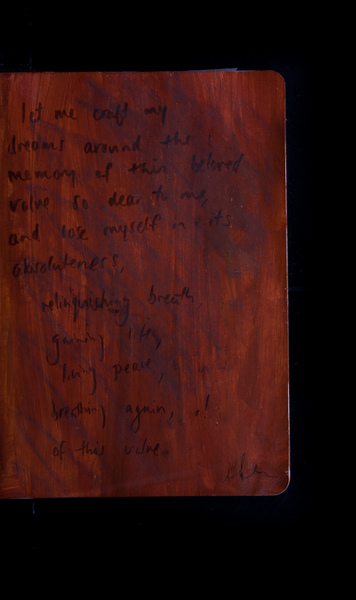 let me craft my
dreams around the
memory of this beloved
valve so dear to me,
and lose myself in its
absoluteness,
relinquishing breath,
gaining life,
living peace,
breathing again,
of this valve.